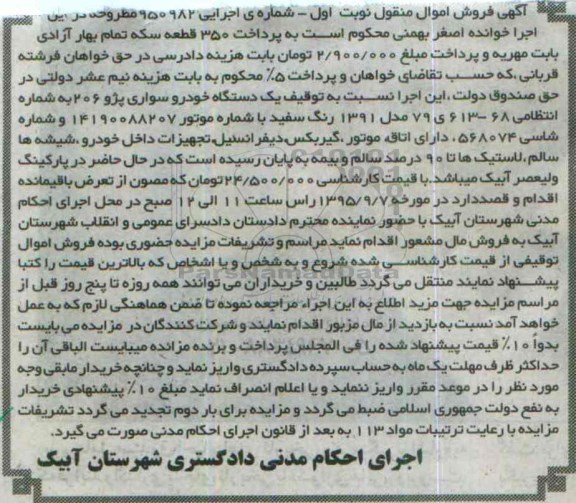 آگهی فروش اموال منقول نوبت اول - شماره ی اجرایی ۹۵۰۹۸۲ مطروحه در این
اجرا خوانده اصغر بهمنی محکوم است به پرداخت ۳۵۰ قطعه سکه تمام بهار آزادی
بابت مهریه و پرداخت مبلغ ۲/۹۰۰/۰۰۰ تومان بابت هزینه دادرسی در حق خواهان فرشته
قربانی ،که حسب تقاضای خواهان و پرداخت ۵٪ محکوم به بابت هزینه نیم عشر دولتی در
حق صندوق دولت ،این اجرا نسبت به توقیف یک دستگاه خودرو سواری پژو ۲۰۶ به شماره
انتظامی ۶۸ -۶۱۳ ی ۷۹ مدل ۱۳۹۱ رنگ سفید با شماره موتور ۱۴۱۹۰۰۸۸۲۰۷ و شماره
شاسی ۵۶۸۰۷۴ ، دارای اتاق، موتور ،گیربکس،دیفرانسیل،تجهیزات داخل خودرو ،شیشه ها
سالم ،لاستیک ها تا ۹۰ درصد سالم و بیمه به پایان رسیده است که در حال حاضر در پارکینگ
ولیعصر آبیک میباشد.با قیمت کارشناسی ۲۴/۵۰۰/۰۰۰تومان که مصون از تعرض باقیمانده
اقدام و قصددارد در مورخه ۱۳۹۵/۹/۷ راس ساعت ۱۱ الی ۱۲ صبح در محل اجرای احکام
مدنی شهرستان آبیک با حضور نماینده محترم دادستان دادسرای عمومی و انقلاب شهرستان
آبیک به فروش مال مشعور اقدام نماید مراسم و تشریفات مزایده حضوری بوده فروش اموال
توقیفی از قیمت کارشناسی شده شروع و به شخص و یا اشخاص که بالاترین قیمت را کتبا
پیشنهاد نمایند منتقل می گردد طالبین و خریداران می توانند همه روزه تا پنج روز قبل از
مراسم مزایده جهت مزید اطلاع به این اجراء مراجعه نموده تا ضمن هماهنگی لازم که به عمل
خواهد آمد نسبت به بازدید از مال مزبور اقدام نمایند و شرکت کنندگان در مزایده می بایست
بدوا ۱۰٪ قیمت پیشنهاد شده را فی المجلس پرداخت و برنده مزائده میبایست الباقی آن را
حداکثر ظرف مهلت یک ماه به حساب سپرده دادگستری واریز نماید و چنانچه خریدار مابقی وجه
مورد نظر را در موعد مقرر واریز ننماید و یا اعلام انصراف نماید مبلغ ۱۰٪ پیشنهادی خریدار
به نفع دولت جمهوری اسلامی ضبط می گردد و مزایده برای بار دوم تجدید می گردد تشریفات
مزایده با رعایت ترتیبات مواد ۱۱۳ به بعد از قانون اجرای احکام مدنی صورت می گیرد.
اجرای احکام مدنی دادگستری شهرستان آبیک
ParsNamadData